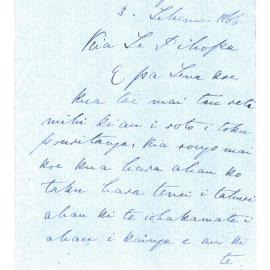 3.
Kia Te Pihopa
E pa Tena koe
kua tae mai tau reta
mihi ki au i roto i toku
pouritanga, kia rongo mai
koe kua hara ahau ko
taku hara tenei i tahuri
ahau ki te whakamate i
ahau i kainga e au ki
te